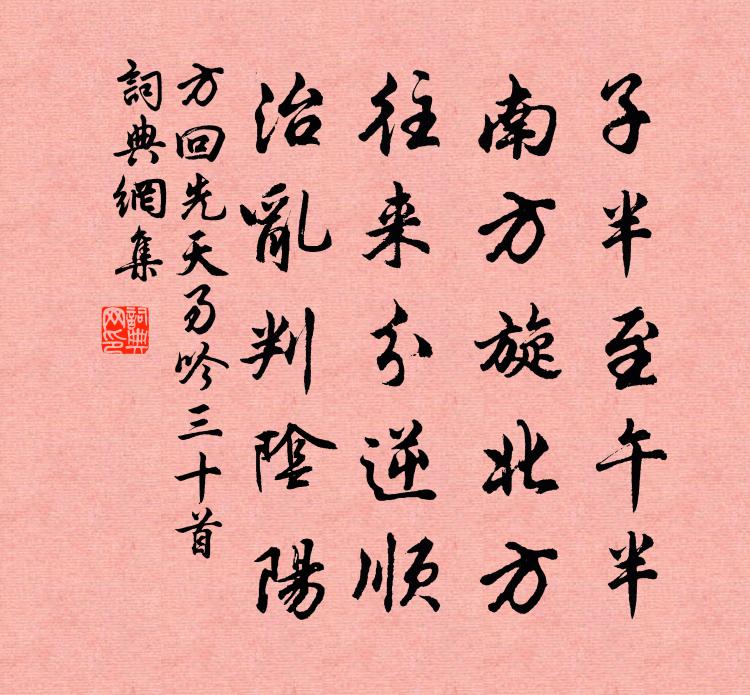 子半至午半
南方旋北方
往来分逆順
治亂判陰陽
方回先天易吟三十首
詞典網集
詞典
网印